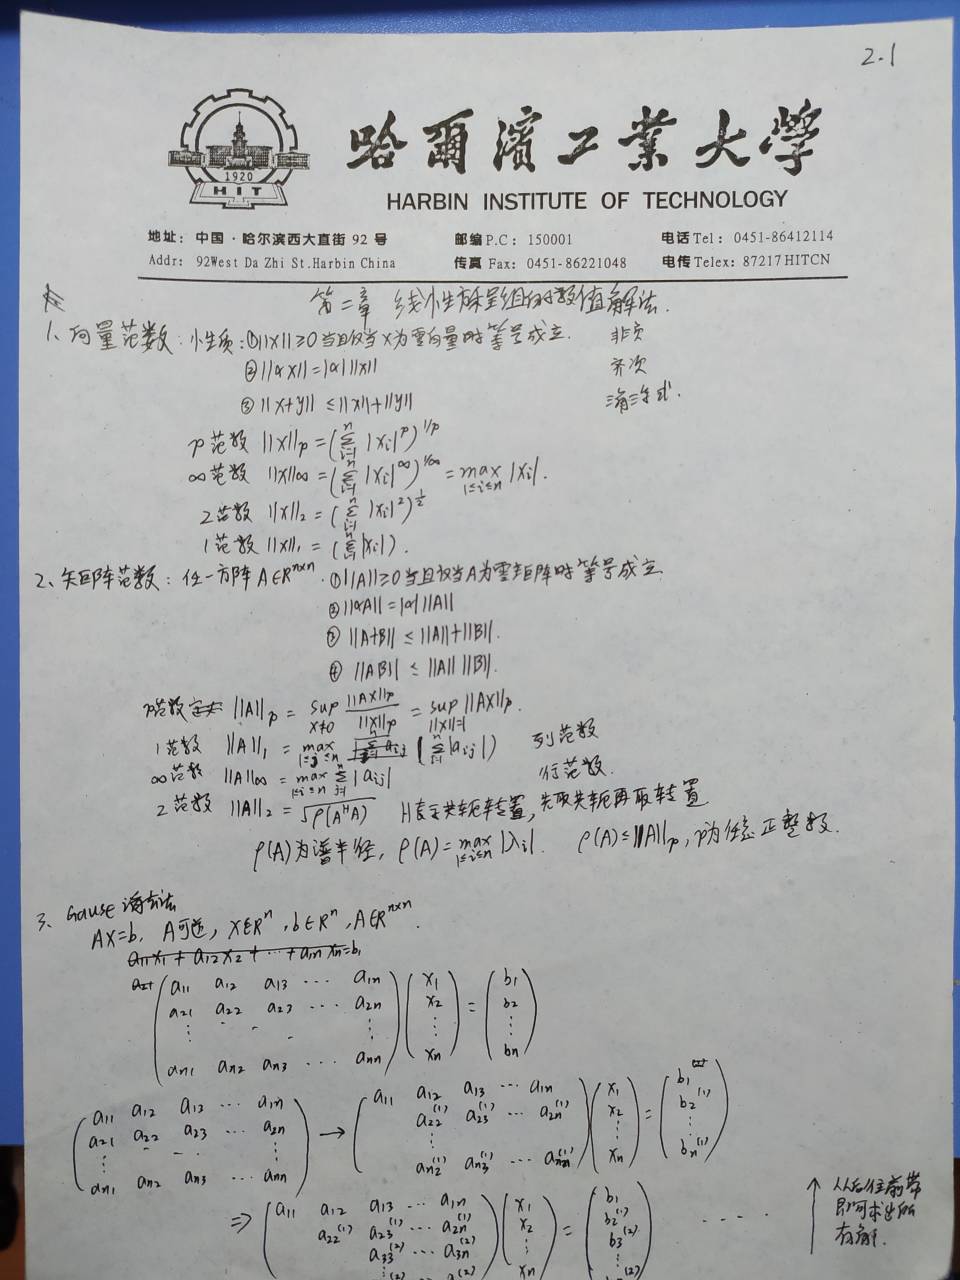 2.1
1920
HIT
哈爾濱工業大學
HARBIN INSTITUTE OF TECHNOLOGY
地址：中国·哈尔滨西大直街 92 号 邮编 P.C：150001 电话 Tel：0451-86412114
Addr: 92West Da Zhi St.Harbin China 传真 Fax: 0451-86221048 电传 Telex: 87217 HITCN
第二章 线性方程组的数值解法.
1、向量范数：性质：①||x||≥0 当且仅当x为零向量时等号成立. 非负
②||αx||=|α|||x|| 齐次
③||x+y|| ≤||x||+||y|| 三角不等式.
p范数 ||x||p = (∑_{i=1}^{n} |xi|^p)^{1/p}
∞范数 ||x||∞ = (∑_{i=1}^{n} |xi|^∞)^{1/∞} = max_{1≤i≤n} |xi|.
2范数 ||x||₂ = (∑_{i=1}^{n} |xi|²)^{1/2}
1范数 ||x||₁ = (∑_{i=1}^{n} |xi|).
2、矩阵范数：任一方阵 A∈R^{n×n}. ①||A||≥0 当且仅当A为零矩阵时等号成立.
②||αA|| = |α| ||A||
③ ||A+B|| ≤ ||A||+||B||.
④ ||AB|| ≤ ||A|| ||B||.
p范数定义 ||A||p = sup_{x≠0} ||Ax||p / ||x||p = sup_{||x||=1} ||Ax||p.
1范数 ||A||₁ = max_{1≤j≤n} (∑_{i=1}^{n} |aij|) 列范数
∞范数 ||A||∞ = max_{1≤i≤n} ∑_{j=1}^{n} |aij| 行范数.
2范数 ||A||₂ = √ρ(A^H A) H表示共轭转置，先取共轭再取转置
ρ(A)为谱半径，ρ(A) = max_{1≤i≤n} |λi|. ρ(A)≤||A||p, p为任意正整数.
3、Gause消去法
Ax=b, A可逆, x∈R^n, b∈R^n, A∈R^{n×n}.
a11x1 + a12x2 + ··· + a1nxn = b1
a21
(a11 a12 a13 ··· a1n) (x1) = (b1)
(a21 a22 a23 ··· a2n) (x2) (b2)
(⋮ ⋮) (⋮) (⋮)
(an1 an2 an3 ··· ann) (xn) (bn)
(a11 a12 a13 ··· a1n) → (a11 a12 a13 ··· a1n) (x1) = (b1)
(a21 a22 a23 ··· a2n) (a22^(1) a23^(1) ··· a2n^(1)) (x2) (b2^(1))
(⋮ ⋮) (⋮) (⋮) (⋮)
(an1 an2 an3 ··· ann) (an2^(1) an3^(1) ··· ann^(1)) (xn) (bn^(1))
⇒ (a11 a12 a13 ··· a1n) (x1) = (b1) ····
(a22^(1) a23^(1) ··· a2n^(1)) (x2) (b2^(1))
(a33^(2) ··· a3n^(2)) (⋮) (b3^(2))
(⋮ (2)) (xn) (⋮ (2))
↑ 从后往前带
即可求出所
有解.